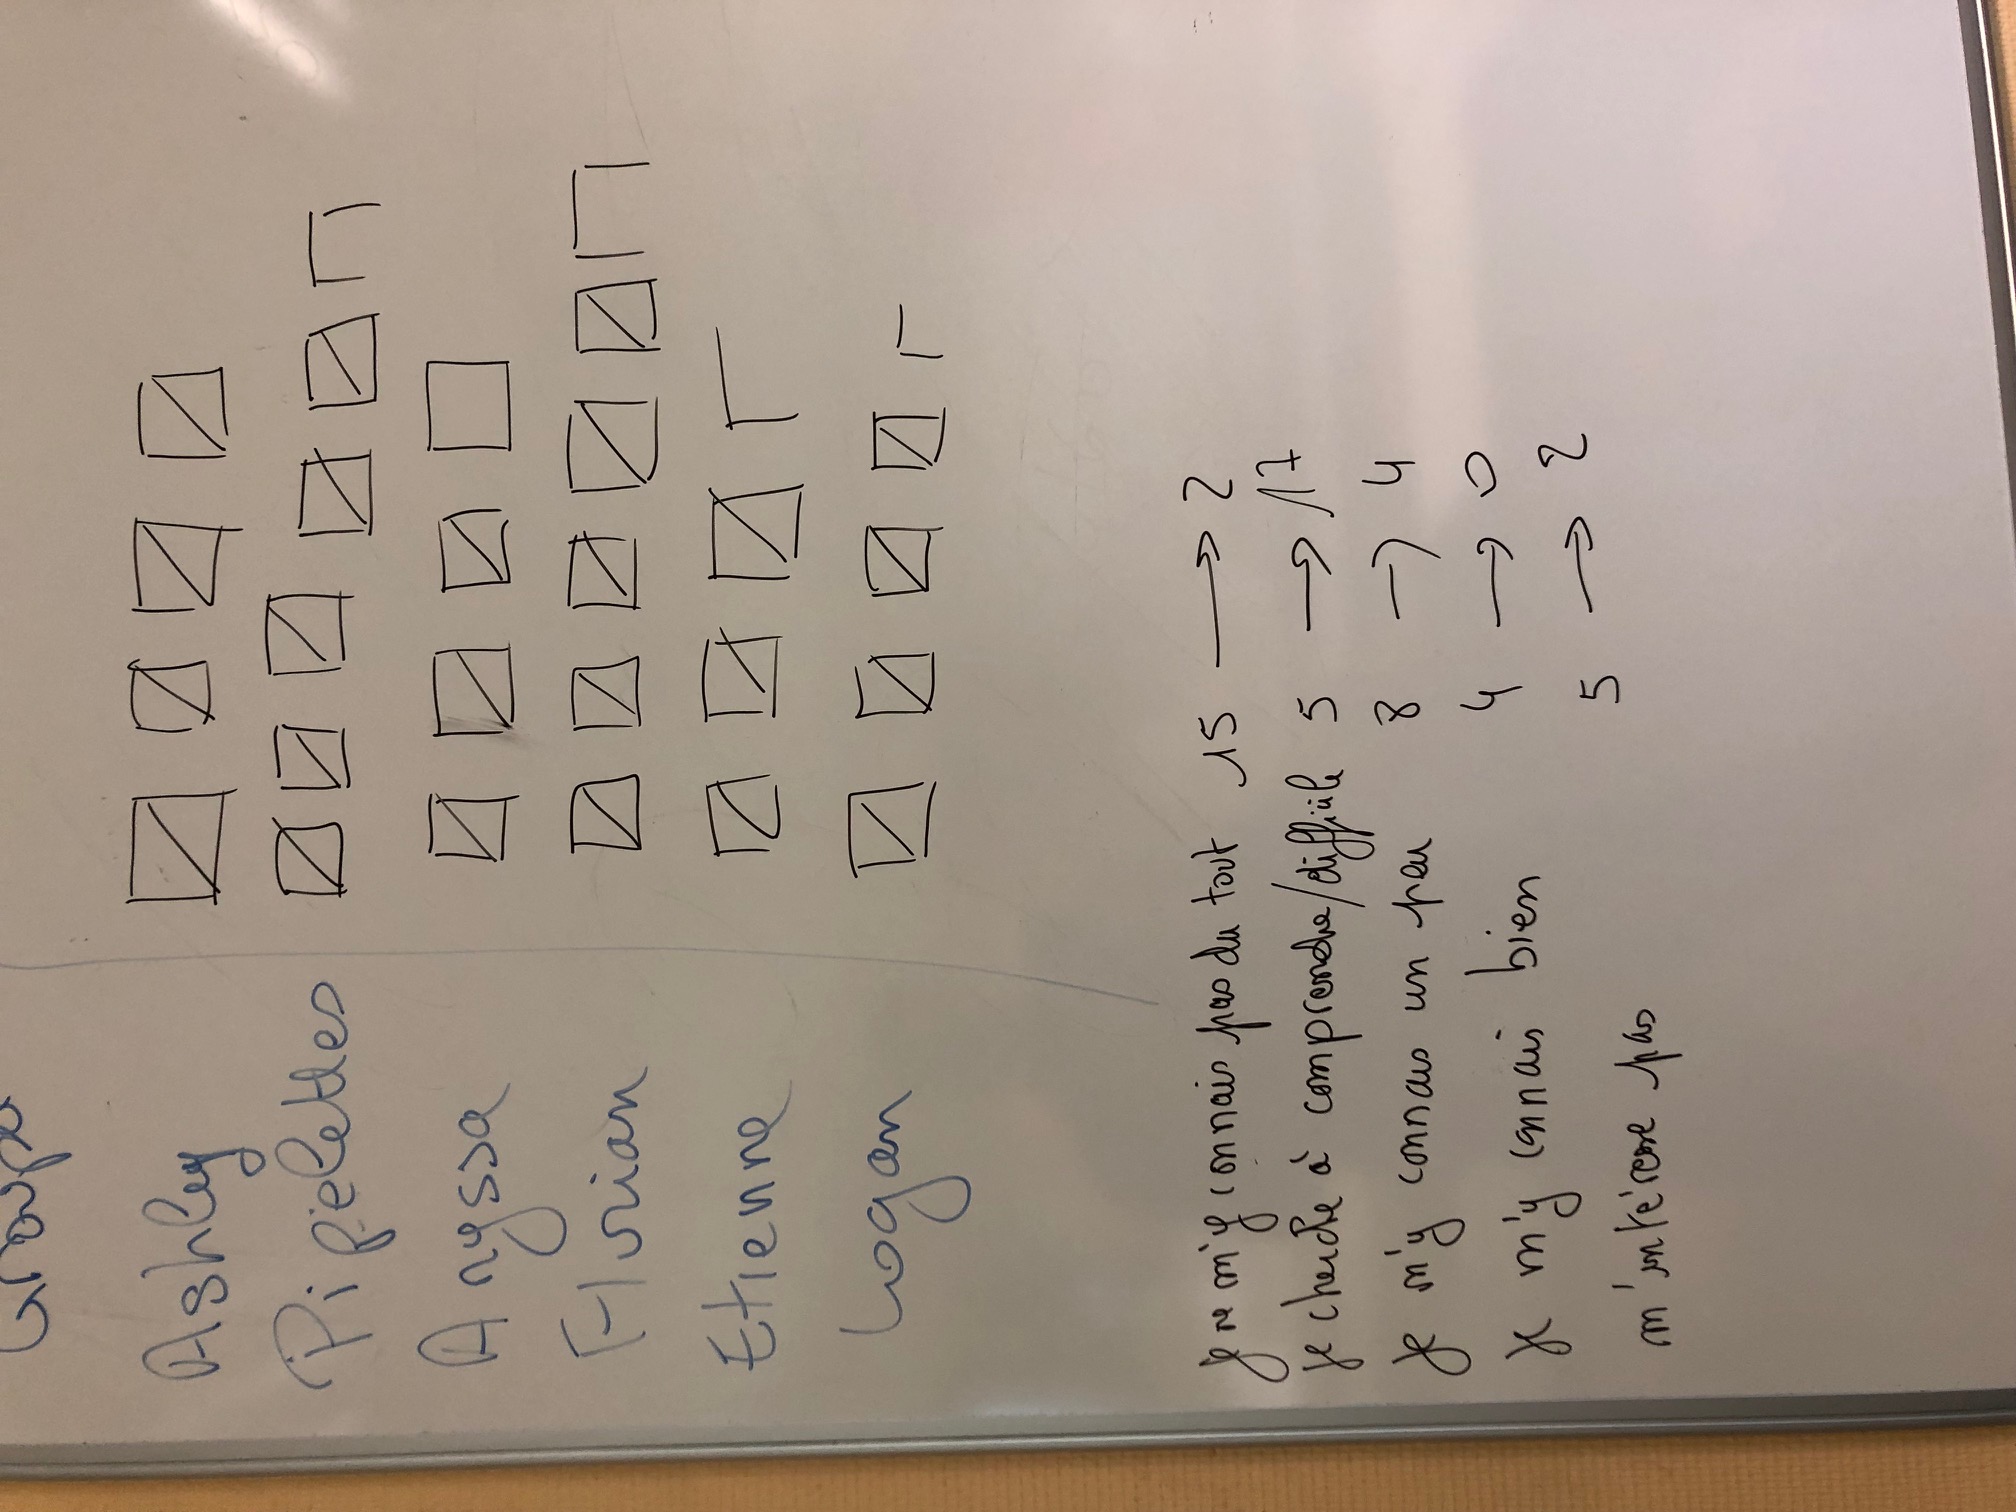 Groupe
Ashley
Pipelettes
Anyssa
Flvrian
Etienne
Logan
Je ne m'y connais pas du tout 15 → 2
Je cherche à comprendre/difficile 5 → 17
Je m'y connais un peu 8 → 4
Je m'y connais bien 4 → 0
m'intéresse pas 5 → 2